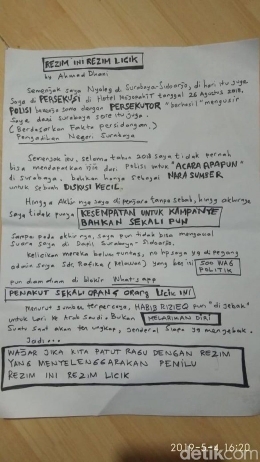 REZIM INI REZIM LICIK
by Ahmad Dhani
Semenjak saya Nyaleg di Surabaya-Sidoarjo, di hari itu juga
Saya di PERSEKUSI di Hotel Mojopahit tanggal 26 Agustus 2018.
POLISI bekerja sama dengan PERSEKUTOR "berhasil" mengusir
Saya dari Surabaya sore itu juga.
(Berdasarkan Fakta persidangan)
Pengadilan Negeri Surabaya
Semenjak itu, selama tahun 2018 saya tidak pernah
bisa mendapatkan izin dari Polisi untuk "ACARA APAPUN"
di Surabaya, bahkan hanya sebagai NARA SUMBER
untuk sebuah DISKUSI KECIL.
Hingga Akhirnya saya di penjara tanpa sebab, hingga akhirnya
Saya tidak punya KESEMPATAN UNTUK KAMPANYE
BAHKAN SEKALI PUN
Sampai pada akhirnya, saya pun tidak bisa mengawal
Suara saya di Dapil Surabaya-Sidoarjo.
Kelicikan mereka belum tuntas, no hp saya yg di pegang
admin saya Sdr. Rafika (Relawan) yang berisi 500 WAG
POLITIK
pun diam diam di blokir Whats app
PENAKUT SEKALI ORANG ORANG LICIK INI
Menurut sumber terpercaya, HABIB RIZIEQ pun "di jebak"
untuk lari ke Arab Saudi. Bukan MELARIKAN DIRI
Suatu saat akan terungkap, Jenderal siapa yg mengebak.
Jadi...
WAJAR JIKA KITA PATUT RAGU DENGAN REZIM
YANG MENYELENGGARAKAN PEMILU
REZIM INI REZIM LICIK
2019-5-4 16:20
detikcom